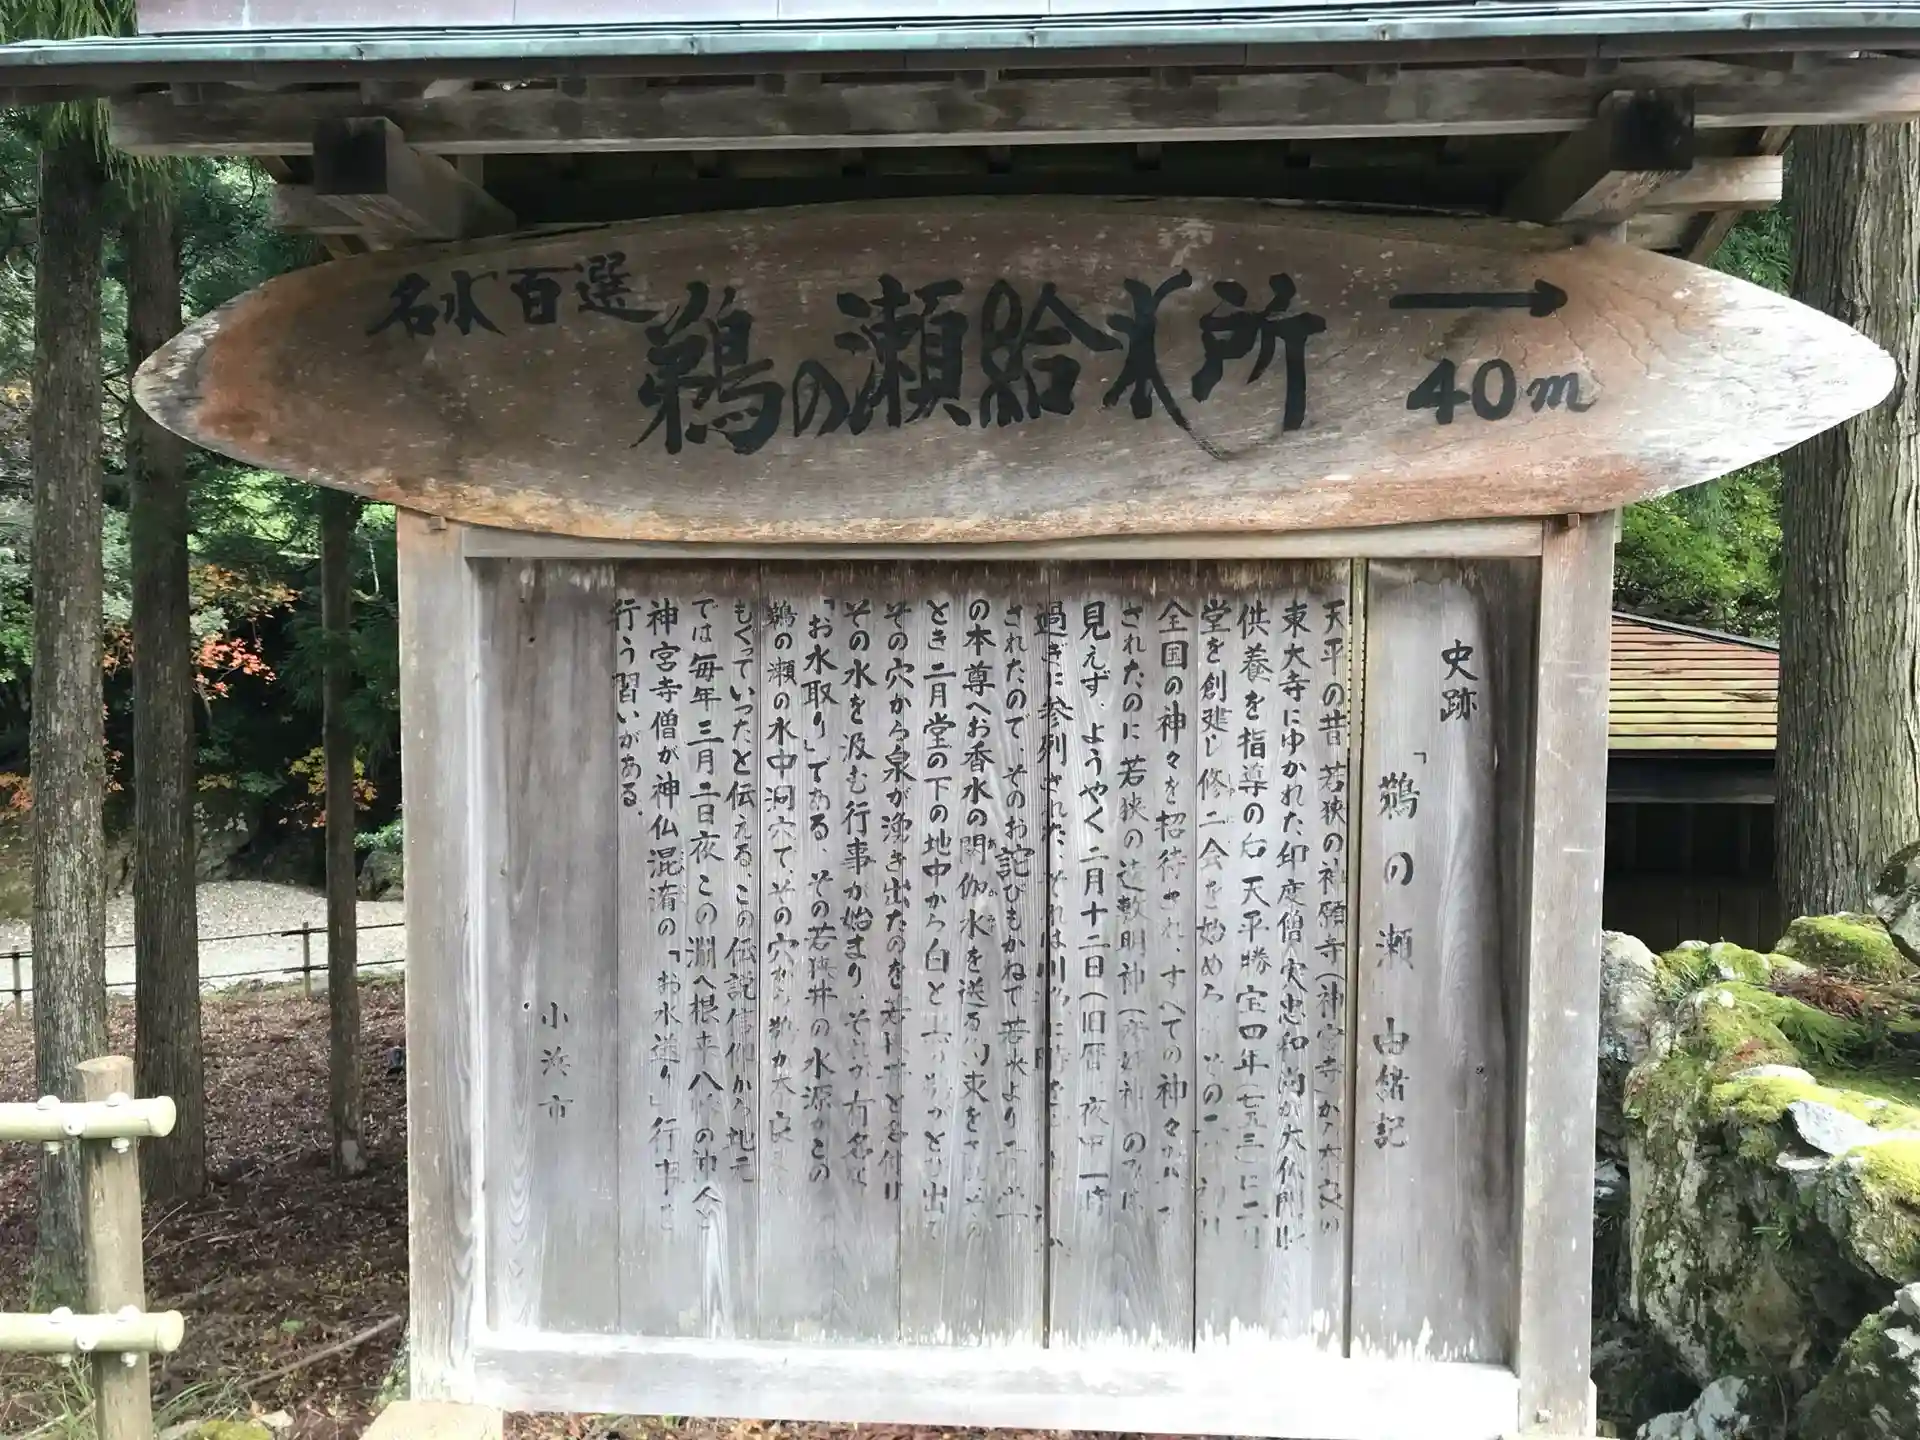 名水百選
鵜の瀬給水所
→
40m
史跡
「鵜の瀬」由緒記
天平の昔 若狭の神願寺(神宮寺)から奈良の
東大寺にゆかれた印度僧 実忠和尚が大仏開眼
供養を指導の后 天平勝宝四年(七五三)に二月
堂を創建し修二会を始められ その二月初日に
全国の神々を招待され、すべての神々が
されたのに 若狭の遠敷明神(彦姫神)のみは
見えず、ようやく二月十二日(旧暦)夜中一時
過ぎに参列された、それは川漁に時を
されたので、そのお詫びもかねて若狭より二月堂
の本尊へお香水の閼伽水を送る約束をされ その
とき二月堂の下の地中から白と黒の鵜がとび出て
その穴から泉が湧き出たのを若狭井と名付け
その水を汲む行事が始まり、それが有名な
「お水取り」である、その若狭井の水源がこの
鵜の瀬の水中洞穴で、その穴から鵜が奈良まで
もぐっていったと伝える、この伝説信仰から地元
では毎年三月二日夜 この淵へ根来八幡の神人と
神宮寺僧が神仏混淆の「お水送り」行事を
行う習いがある.
小浜市